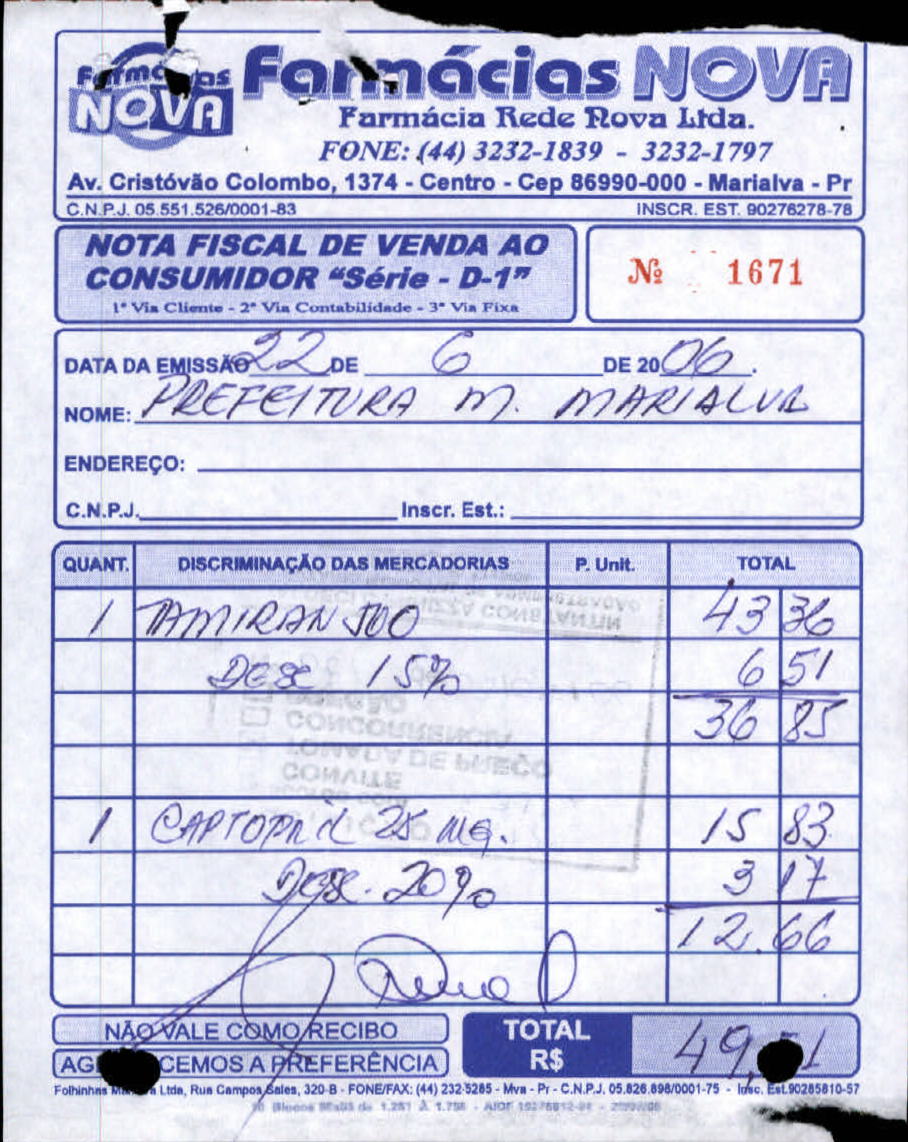 Farmácias NOVA
Farmácias NOVA
Farmácia Rede Nova Ltda.
FONE: (44) 3232-1839 - 3232-1797
Av. Cristóvão Colombo, 1374 - Centro - Cep 86990-000 - Marialva - Pr
C.N.P.J. 05.551.526/0001-83 INSCR. EST. 90276278-78
NOTA FISCAL DE VENDA AO
CONSUMIDOR "Série - D-1"
1ª Via Cliente - 2ª Via Contabilidade - 3ª Via Fixa
Nº 1671
DATA DA EMISSÃO 22 DE 6 DE 2006.
NOME: PREFEITURA M. MARIALVA
ENDEREÇO:
C.N.P.J. Inscr. Est.:
QUANT. DISCRIMINAÇÃO DAS MERCADORIAS P. Unit. TOTAL
1 TAMIRAN 500 43 36
DESC 15% 6 51
36 85
CONCORRÊNCIA
TOMADA DE PREÇO
CONVITE
1 CAPTOPRIL 25 MG. 15 83
DESC. 20% 3 17
12.66
NÃO VALE COMO RECIBO
AGRADECEMOS A PREFERÊNCIA
TOTAL
R$ 49,51
Ltda, Rua Campos Sales, 320-B - FONE/FAX: (44) 232-5285 - Mva - Pr - C.N.P.J. 05.826.898/0001-75 - Insc. Est.90285810-57